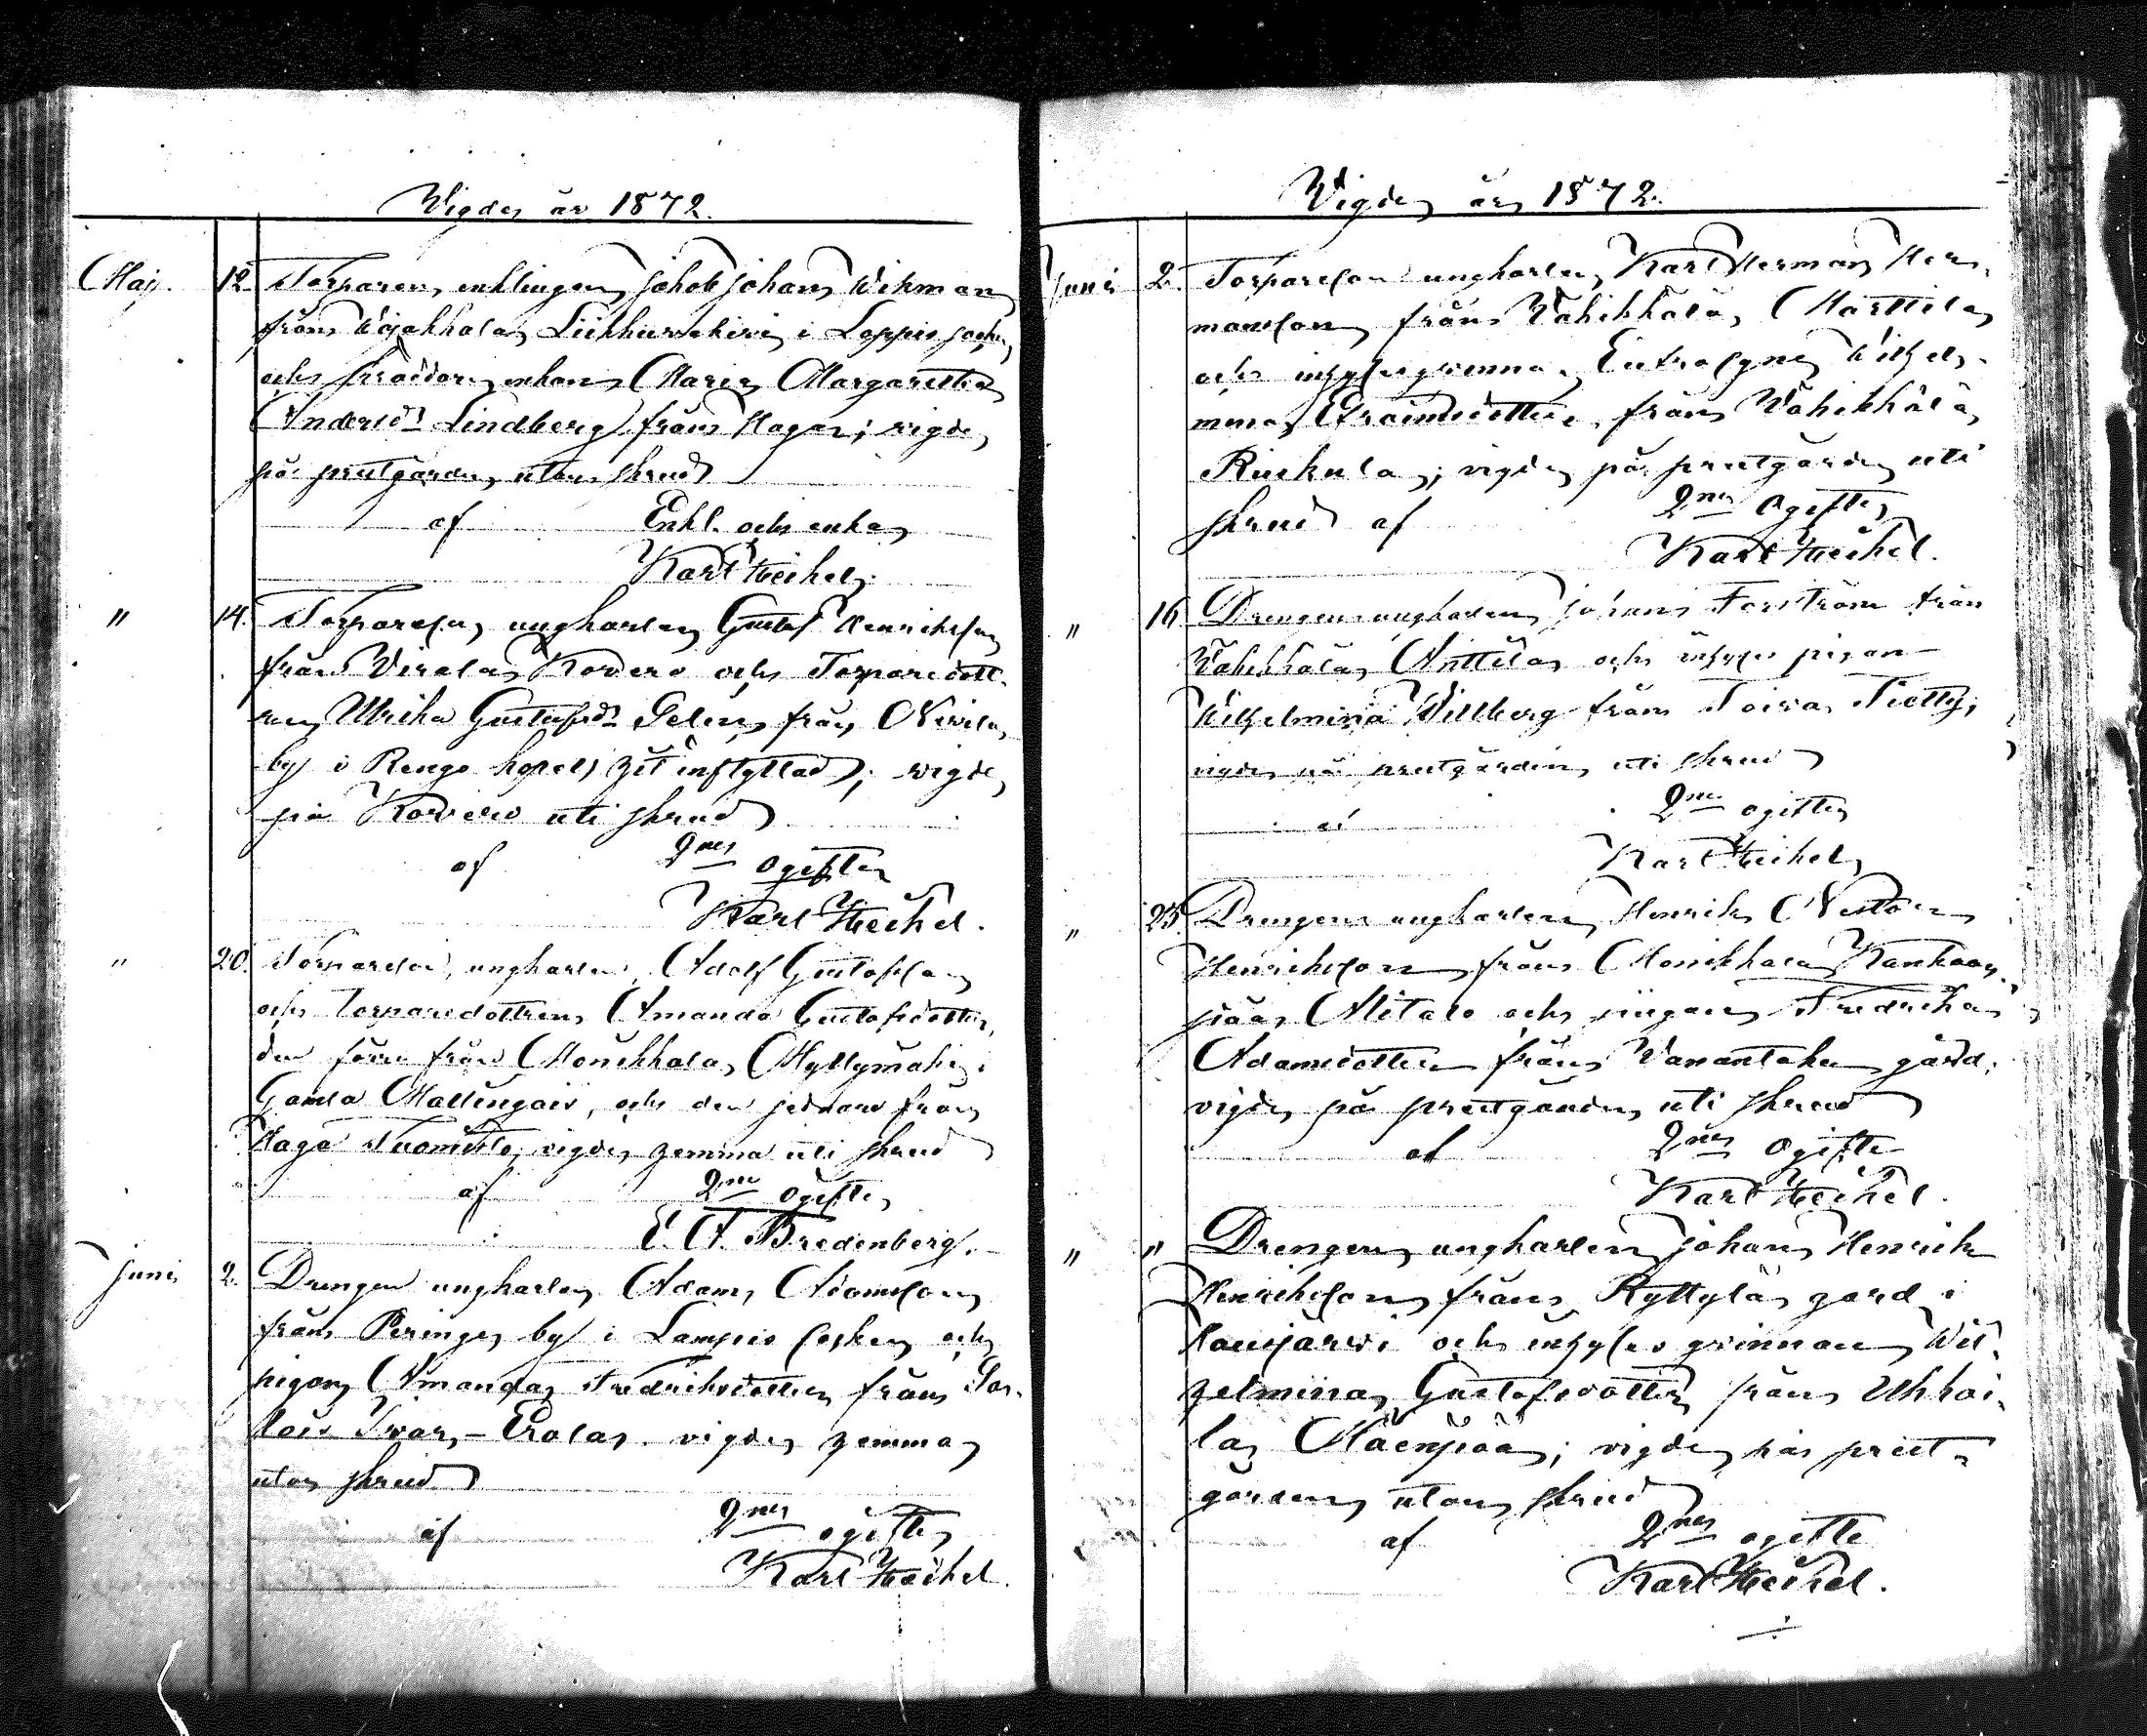 Vigde år 1872.
Maj. 12. Torparen, enklingen Jakob Johan Wikman
från Wojakkala, Liikkurakivi i Loppis socken
och enkan Maria Margaretha
Andersdr Lindberg från Haga; vigde
på prestgården, utan skrud
af Enkl. och enka
Karl Heikel.
" 14. Torpareson, ungkarlen Gustaf Henriksson
från Virala Kovero och Torparedott-
ren Ulrika Gustafsdr Gelin från Nevila
by i Rengo kapell hit inflyttad; vigde
på Kovero uti skrud
af 2ne ogifte
Karl Heikel.
" 20. Torpareson, ungkarlen Adolf Gustafsson
och torparedottren Amanda Gustafsdotter,
den förre från Monikkala, Myllymäki i
Gamla Mallingais, och den sednare från
Haga Tuomisto; vigde hemma uti skrud
af 2ne ogifte
E. A. Bredenberg.
Juni 2. Drengen ungkarlen Adam Adamsson
från by i socken och
pigan Amanda Fredriksdotter från
Eralas. vigde hemma
utan skrud
af 2ne ogifte
Karl Heikel.
Vigde år 1872.
Juni 2. Torpareson ungkarlen Karl Herman Her-
mansson från Vahikkala, Marttila
och inhysesqvinnan Eufrosyne Wilhel-
mina Efraimsdotter från Vahikkala
; vigde på prestgården uti
skrud af 2ne ogifte
Karl Heikel.
" 16 Drengen ungkarlen Johan Forström från
Vahikkala Anttila och inhyses pigan
Wilhelmina Willberg från Toivas Tietty;
vigde på prestgården, uti skrud
af 2ne ogifte
Karl Heikel
" 23. Drengen ungkarlen Henrik Nestor
Henriksson från Monikkala Kankaan-
pää Alitalo och pigan Fredrika
Adamsdotter från Vanantaka gård;
vigde på prestgården, uti skrud
af 2ne ogifte
Karl Heikel.
" " Drengen ungkarlen Johan Henrik
Henriksson från Ryttylä gård i
Hausjärvi och inhyses qvinnan Wil-
helmina Gustafsdotter från Uhkoi-
la Mäenpää; vigde på prest-
gården, utan skrud
af 2ne ogifte
Karl Heikel.